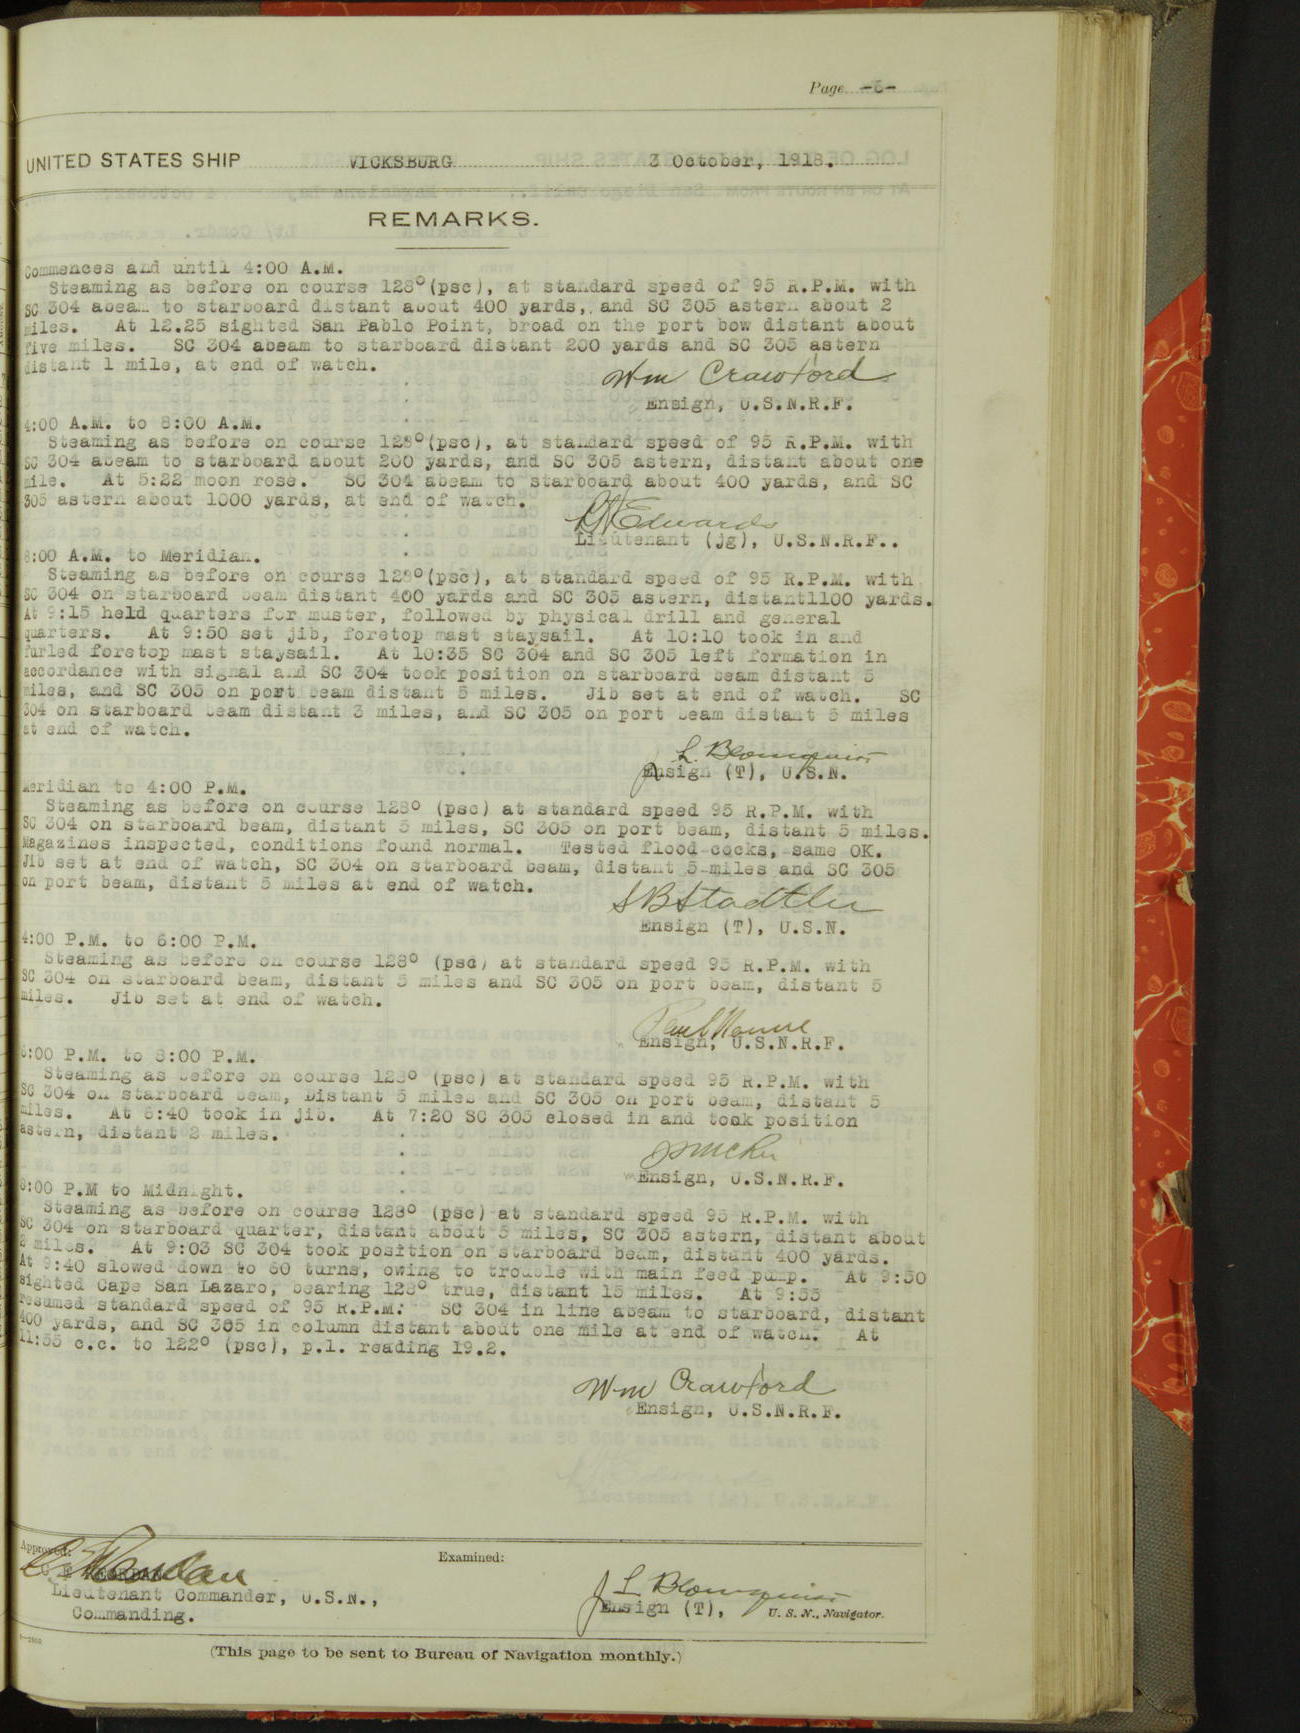 Page -6-
UNITED STATES SHIP VICKSBURG 3 October, 1918.
REMARKS.
Commences and until 4:00 A.M.
Steaming as before on course 128° (psc), at standard speed of 95 R.P.M. with
SC 304 abeam to starboard distant about 400 yards, and SC 305 astern about 2
miles. At 12.25 sighted San Pablo Point, broad on the port bow distant about
five miles. SC 304 abeam to starboard distant 200 yards and SC 305 astern
distant 1 mile, at end of watch.
Wm Crawford
Ensign, U.S.N.R.F.
4:00 A.M. to 8:00 A.M.
Steaming as before on course 128° (psc), at standard speed of 95 R.P.M. with
SC 304 abeam to starboard about 200 yards, and SC 305 astern, distant about one
mile. At 5:22 moon rose. SC 304 abeam to starboard about 400 yards, and SC
305 astern about 1000 yards, at end of watch.
Edwards
Lieutenant (jg), U.S.N.R.F..
8:00 A.M. to Meridian.
Steaming as before on course 128° (psc), at standard speed of 95 R.P.M. with
SC 304 on starboard beam distant 400 yards and SC 305 astern, distant1100 yards.
At 9:15 held quarters for muster, followed by physical drill and general
quarters. At 9:50 set jib, foretop mast staysail. At 10:10 took in and
furled foretop mast staysail. At 10:35 SC 304 and SC 305 left formation in
accordance with signal and SC 304 took position on starboard beam distant 5
miles, and SC 305 on port beam distant 5 miles. Jib set at end of watch. SC
304 on starboard beam distant 3 miles, and SC 305 on port beam distant 5 miles
at end of watch.
J L Blomquist
Ensign (T), U.S.N.
Meridian to 4:00 P.M.
Steaming as before on course 128° (psc) at standard speed 95 R.P.M. with
SC 304 on starboard beam, distant 5 miles, SC 305 on port beam, distant 5 miles.
Magazines inspected, conditions found normal. Tested flood cocks, same OK.
Jib set at end of watch, SC 304 on starboard beam, distant 5 miles and SC 305
on port beam, distant 5 miles at end of watch.
S B Stadtler
Ensign (T), U.S.N.
4:00 P.M. to 6:00 P.M.
Steaming as before on course 128° (psc) at standard speed 95 R.P.M. with
SC 304 on starboard beam, distant 5 miles and SC 305 on port beam, distant 5
miles. Jib set at end of watch.
Paul
Ensign, U.S.N.R.F.
6:00 P.M. to 8:00 P.M.
Steaming as before on course 128° (psc) at standard speed 95 R.P.M. with
SC 304 on starboard beam, Distant 5 miles and SC 305 on port beam, distant 5
miles. At 6:40 took in jib. At 7:20 SC 305 closed in and took position
astern, distant 2 miles.
Ensign, U.S.N.R.F.
8:00 P.M to Midnight.
Steaming as before on course 128° (psc) at standard speed 95 R.P.M. with
SC 304 on starboard quarter, distant about 5 miles, SC 305 astern, distant about
2 miles. At 9:03 SC 304 took position on starboard beam, distant 400 yards.
At 9:40 slowed down to 60 turns, owing to trouble with main feed pump. At 9:50
sighted Cape San Lazaro, bearing 128° true, distant 15 miles. At 9:55
resumed standard speed of 95 R.P.M. SC 304 in line abeam to starboard, distant
400 yards, and SC 305 in column distant about one mile at end of watch. At
11:55 c.c. to 122° (psc), p.l. reading 19.2.
Wm Crawford
Ensign, U.S.N.R.F.
Approved:
C E Reordan
Lieutenant Commander, U.S.N.,
Commanding.
Examined:
J L Blomquist
Ensign (T), U. S. N., Navigator.
(This page to be sent to Bureau of Navigation monthly.)